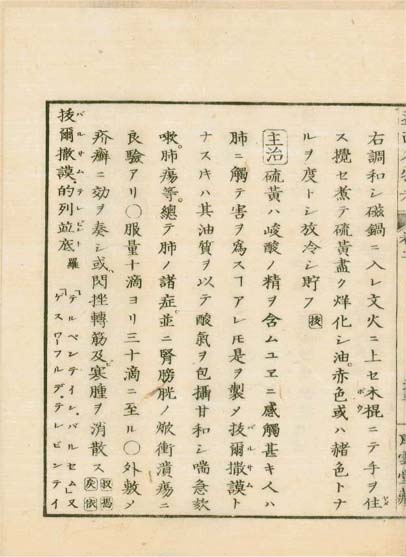 右調和シ磁鍋ニ入レ文火ニ上セ木棍ニテ手ヲ住
ス攪セ煮テ硫黃盡ク烊化シ油赤色或ハ赭色トナ
ルヲ度トシ放冷シ貯フ 㧞
主治 硫黃ハ峻酸ノ精ヲ含ムユヱニ感觸甚キ人ハ
肺ニ觸テ害ヲ爲スヿアレ𪜈是ヲ製メ㧞爾撒謨ト
ナスキハ其油質ヲ以テ酸氣ヲ包攝甘和シ喘急欬
嗽肺瘍等總テ肺ノ諸症並ニ腎膀胱ノ焮衝潰瘍ニ
良驗アリ〇服量十滴ヨリ三十滴ニ至ル〇外敷メ
疥癬ニ効ヲ奏シ或閃挫轉筋及寒腫ヲ消散ス
㧞爾撒謨的列並底 羅「テルベンテイシ、バルセム」又「ゲスワーフルデ、テレビンテイ